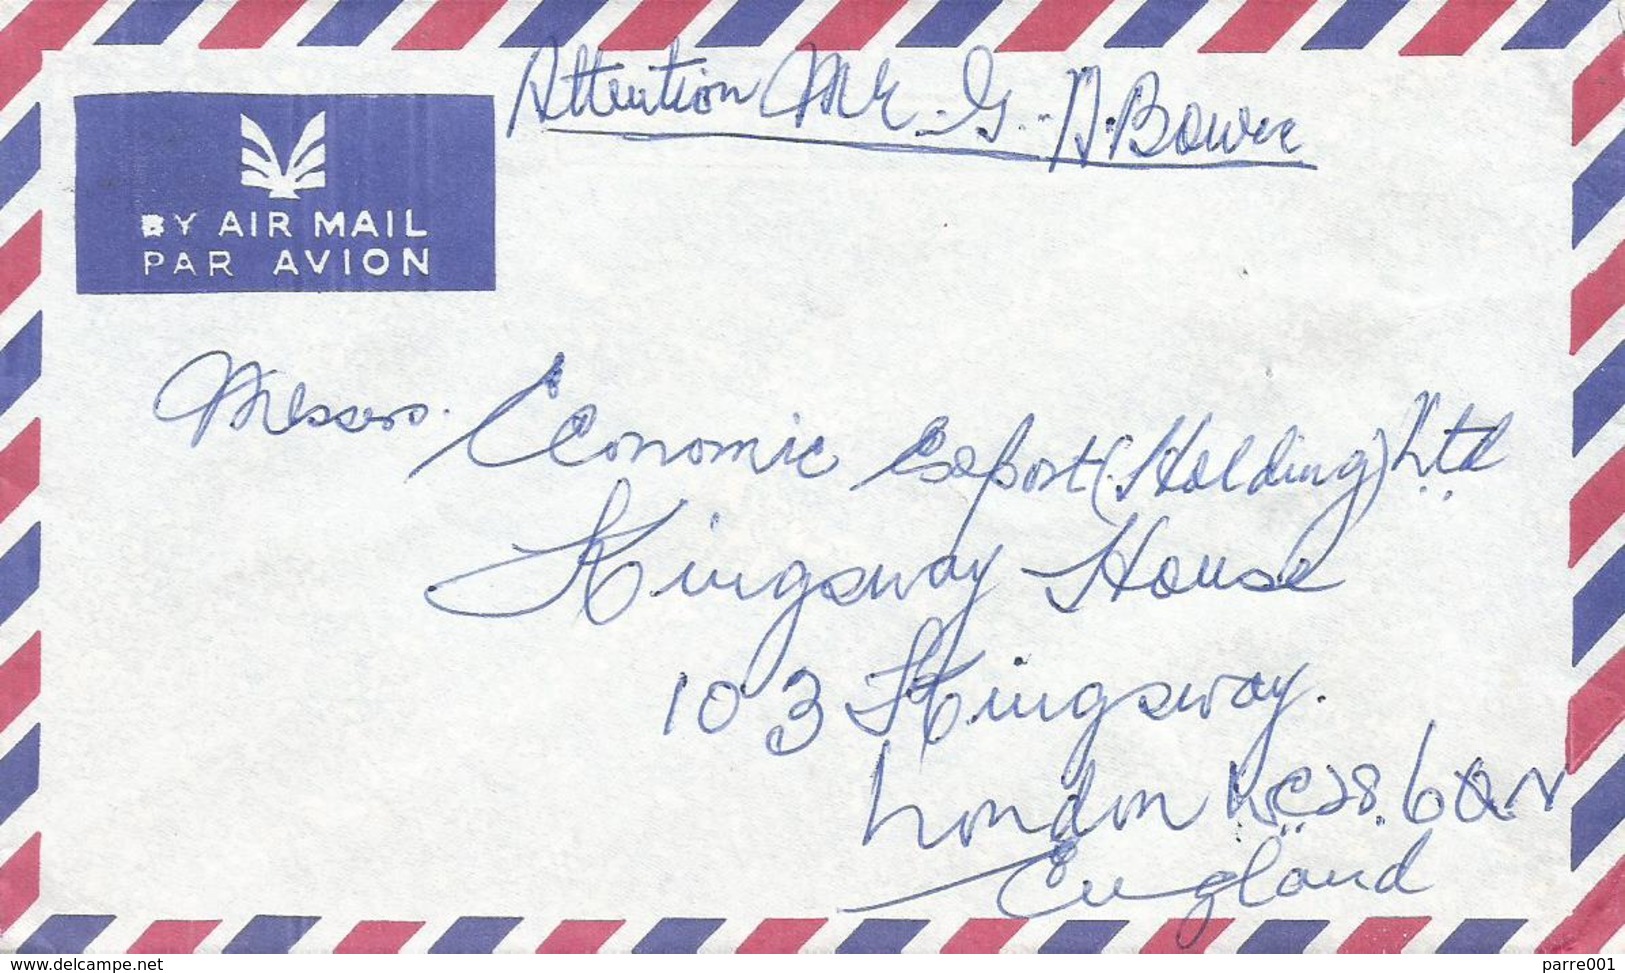 Attention Mr. G. A. Bowee
BY AIR MAIL
PAR AVION
Messers. Economic Export (Holding) Ltd
Kingsway House
103 Kingsway.
London WC2B. 6QN
England
www.delcampe.net
parre001